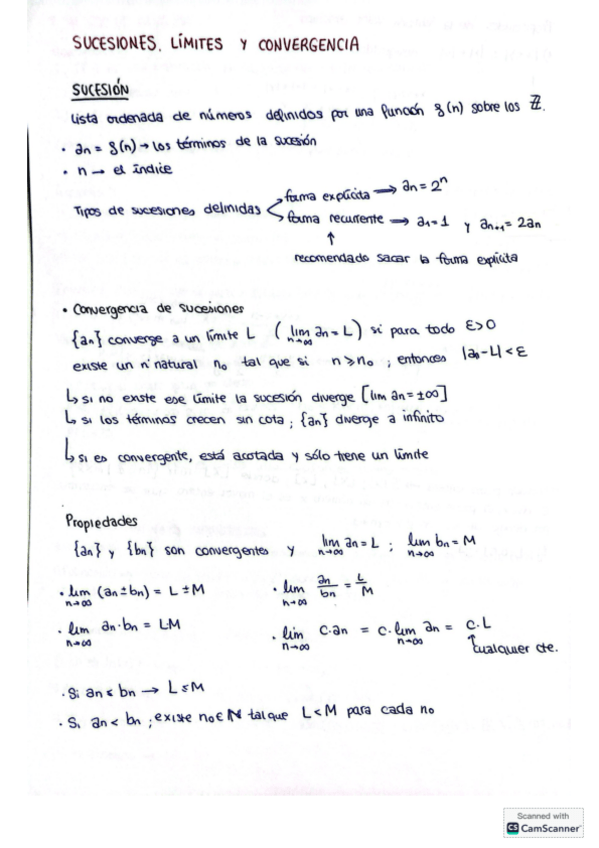 SUCESIONES, LÍMITES Y CONVERGENCIA
SUCESIÓN
Lista ordenada de números definidos por una función f(n) sobre los ℤ.
• an = f(n) → los términos de la sucesión
• n → el índice
Tipos de sucesiones definidas
forma explícita → an = 2^n
forma recurrente → a1 = 1 y an+1 = 2an
↑
recomendado sacar la forma explícita
• Convergencia de sucesiones
{an} converge a un límite L ( lim n→∞ an = L ) si para todo ε>0
existe un nº natural n0 tal que si n ≥ n0 ; entonces |an-L| < ε
↳ si no existe ese límite la sucesión diverge [lim an = ±∞]
↳ si los términos crecen sin cota ; {an} diverge a infinito
↳ si es convergente, está acotada y sólo tiene un límite
Propiedades
{an} y {bn} son convergentes y lim n→∞ an = L ; lim n→∞ bn = M
• lim n→∞ (an ± bn) = L ± M • lim n→∞ an/bn = L/M
• lim n→∞ an·bn = L·M • lim n→∞ c·an = c·lim n→∞ an = c·L
cualquier cte.
• Si an ≤ bn → L ≤ M
• Si an < bn ; existe n0 ∈ N tal que L < M para cada n0
Scanned with
CS CamScanner